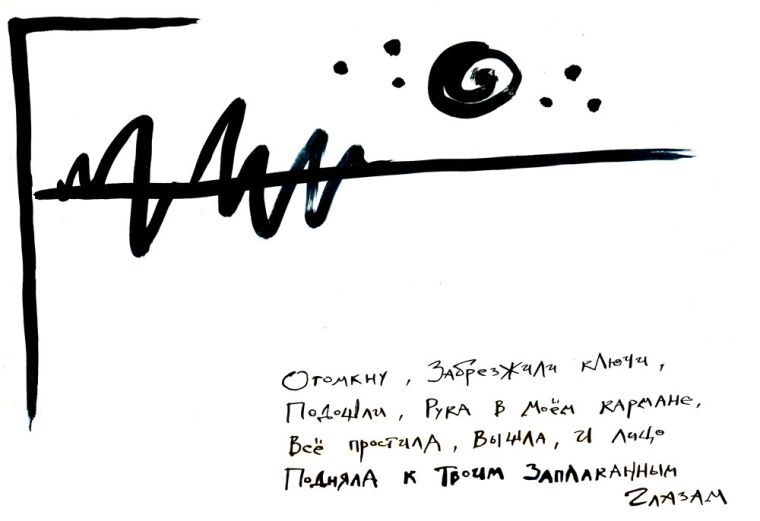 Отомкну, Забрезжили ключи,
Подошли, Рука в моём кармане,
Всё простила, Вышла, и лицо
Подняла к Твоим Заплаканным
Глазам